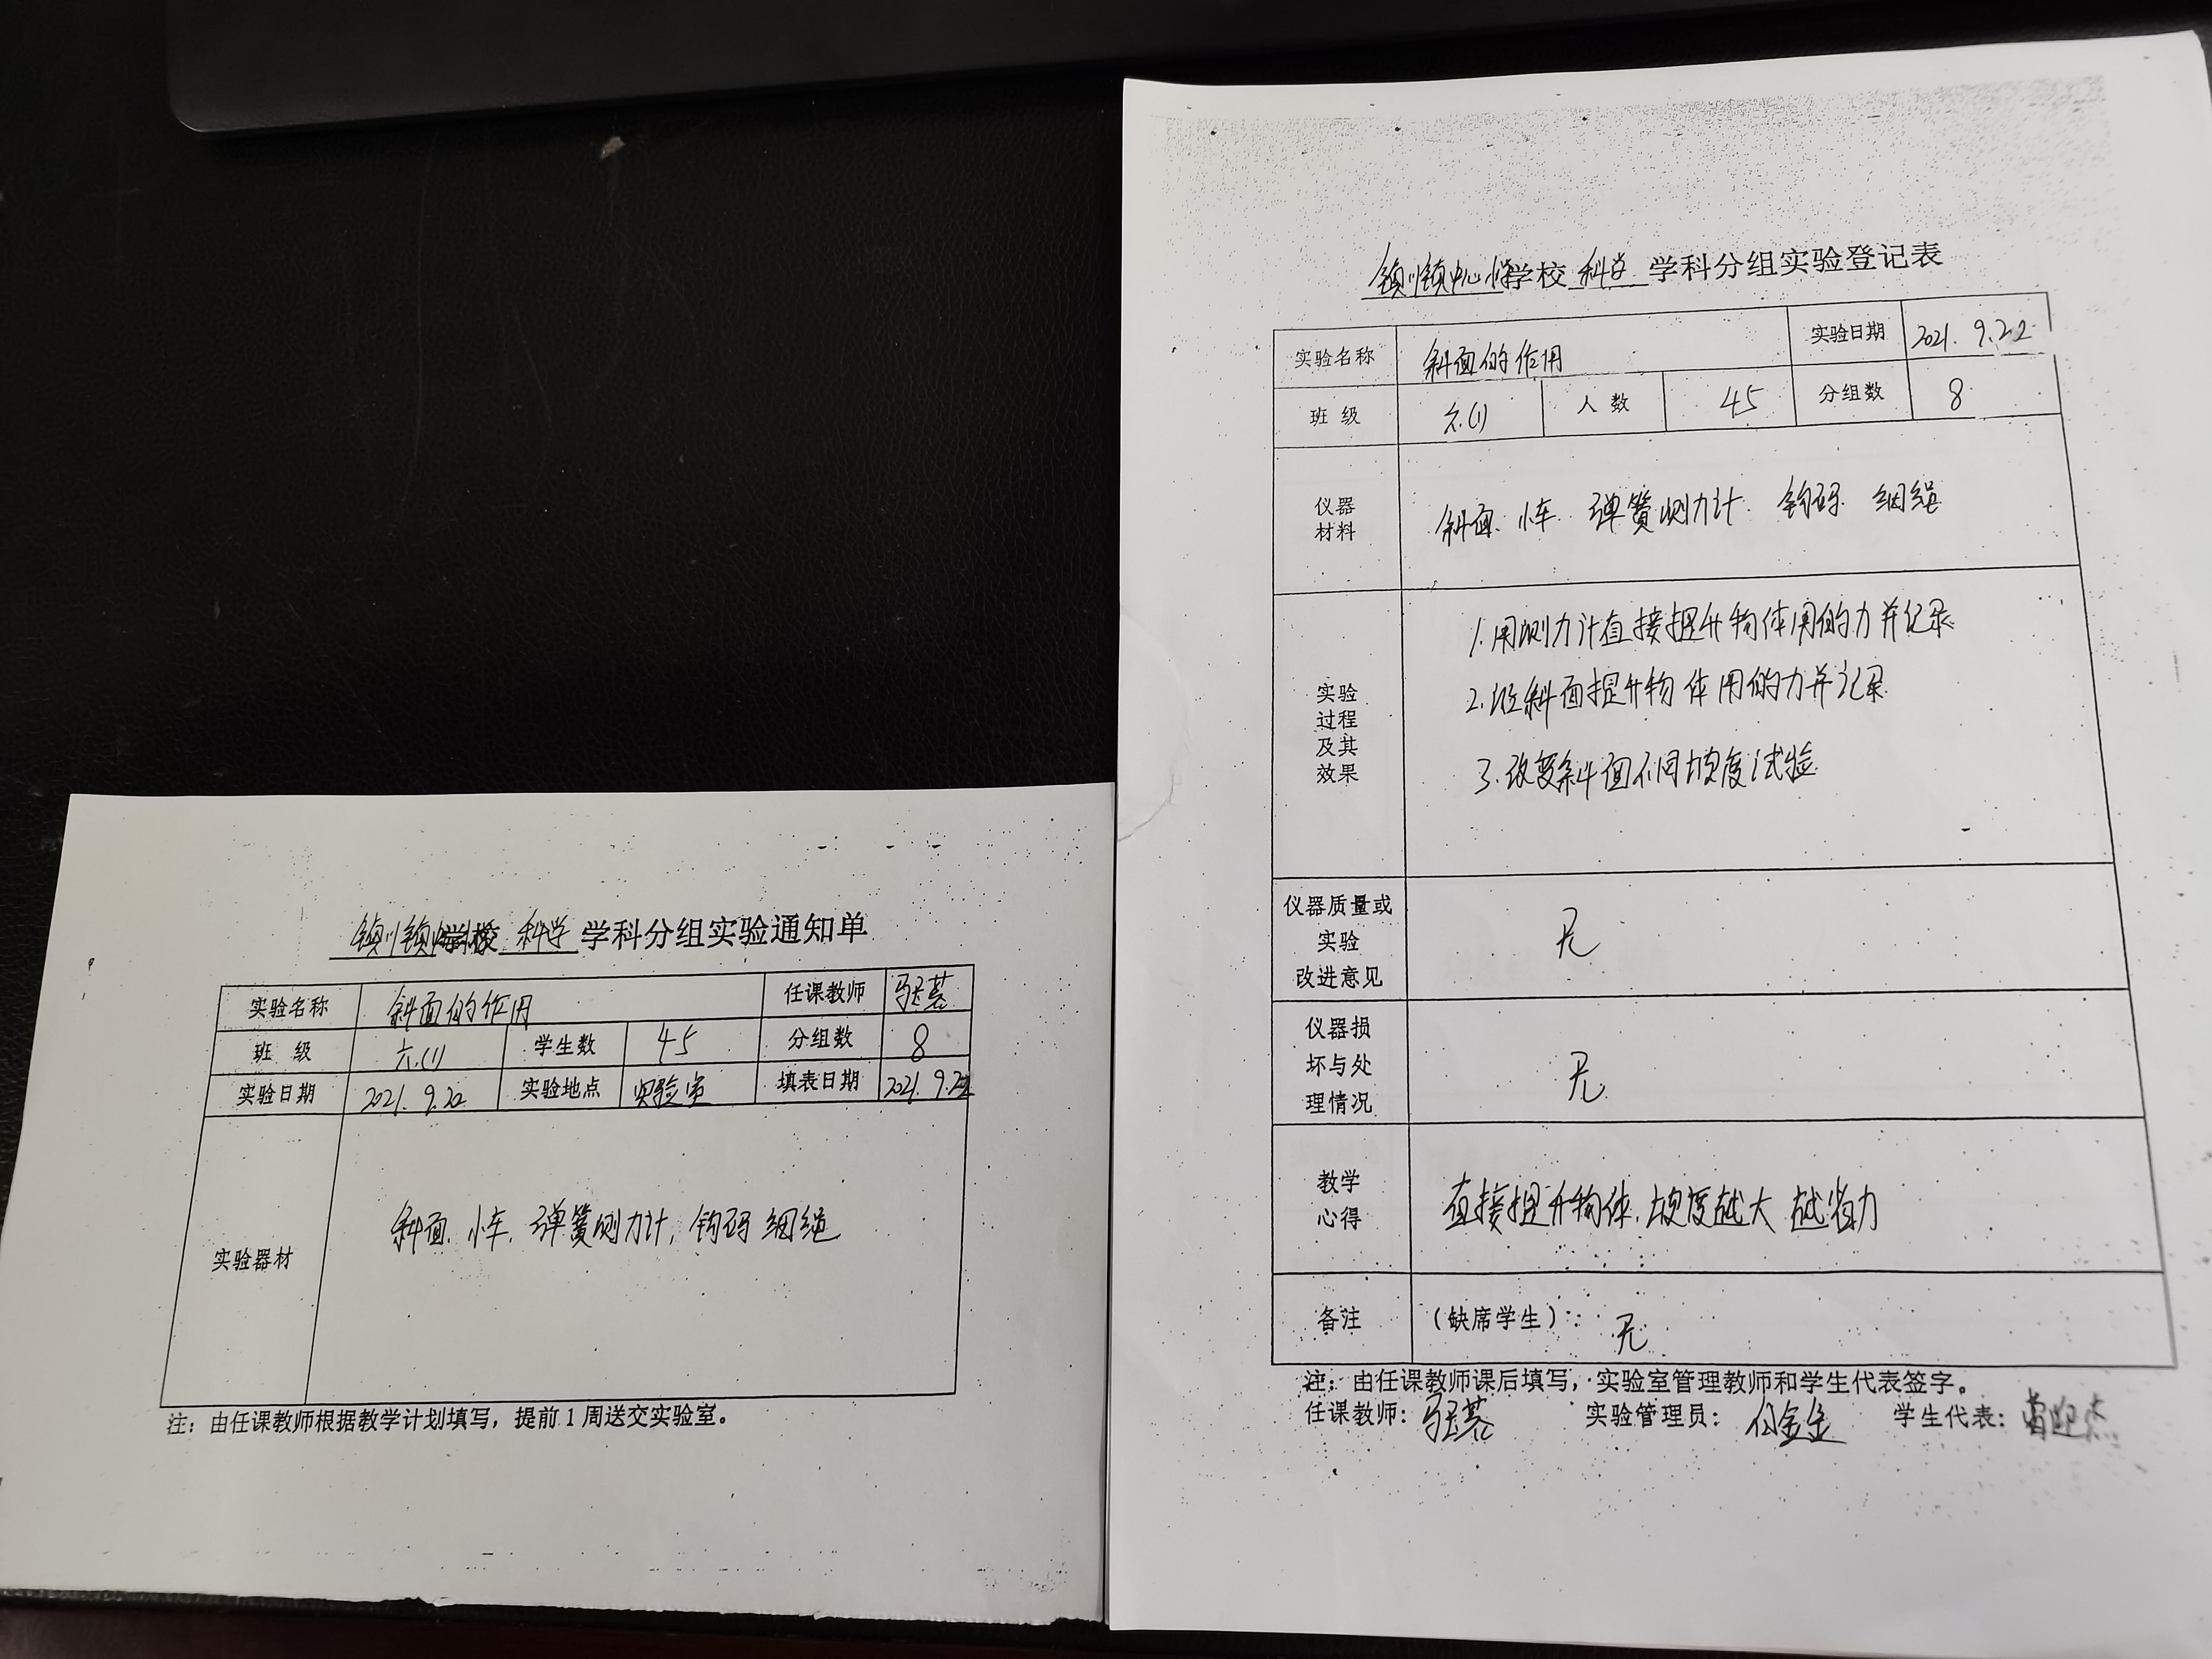 镇川镇中心小学校 科学 学科分组实验通知单
实验名称 斜面的作用 任课教师
班 级 六.(1) 学生数 45 分组数 8
实验日期 2021. 9.22 实验地点 实验室 填表日期 2021. 9.22
实验器材 斜面、小车、弹簧测力计, 钩码 细绳
注：由任课教师根据教学计划填写，提前1周送交实验室。
镇川镇中心小学校 科学 学科分组实验登记表
实验名称 斜面的作用 实验日期 2021. 9.22
班 级 六.(1) 人 数 45 分组数 8
仪器
材料
斜面、小车、弹簧测力计、钩码、细绳
实验
过程
及其
效果
1.用测力计直接提升物体用的力并记录
2.沿斜面提升物体用的力并记录
3.改变斜面不同坡度试验
仪器质量或
实验
改进意见
无
仪器损
坏与处
理情况
无
教学
心得
直接提升物体.坡度越大 越省力
备注 （缺席学生）：无
注：由任课教师课后填写，实验室管理教师和学生代表签字。
任课教师： 实验管理员： 学生代表：